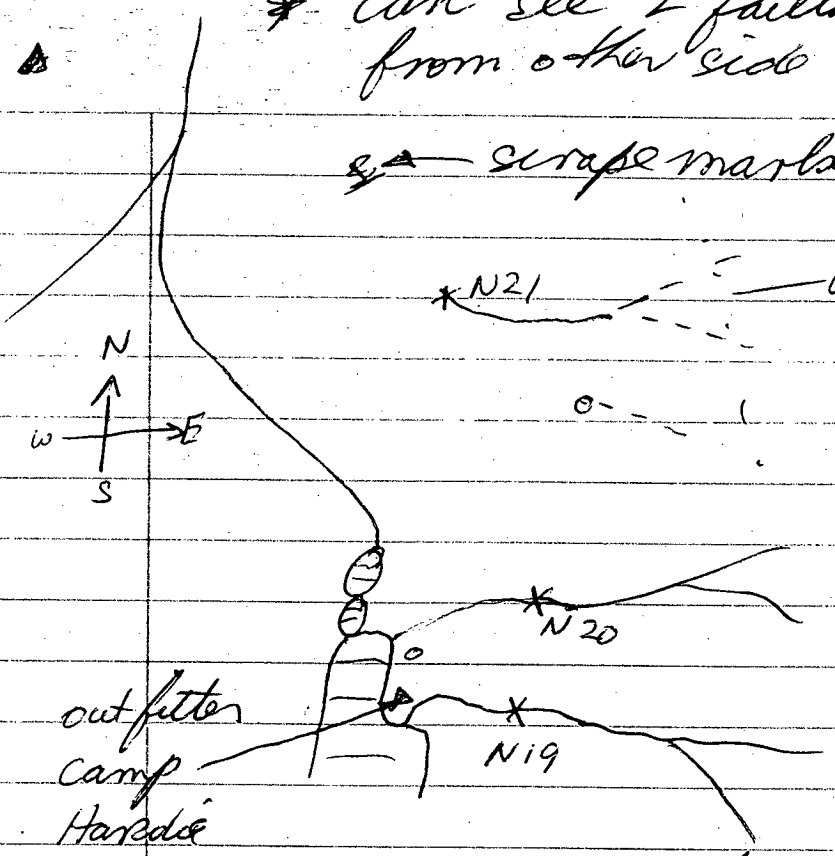 * can see 2
from other side
scrape marks
N21
N
W E
S
N20
outfitter
camp
N19
Hardie